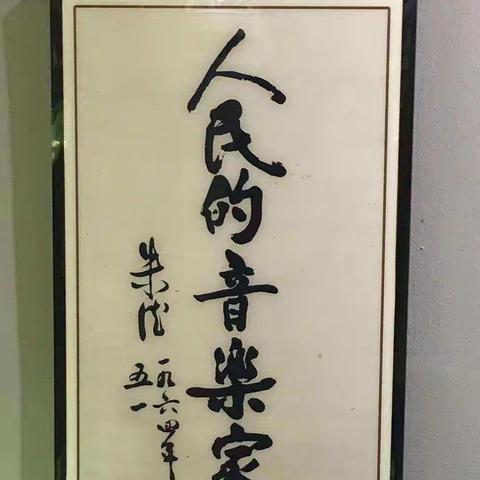 人民的音樂家
朱德 一九六四年
五一